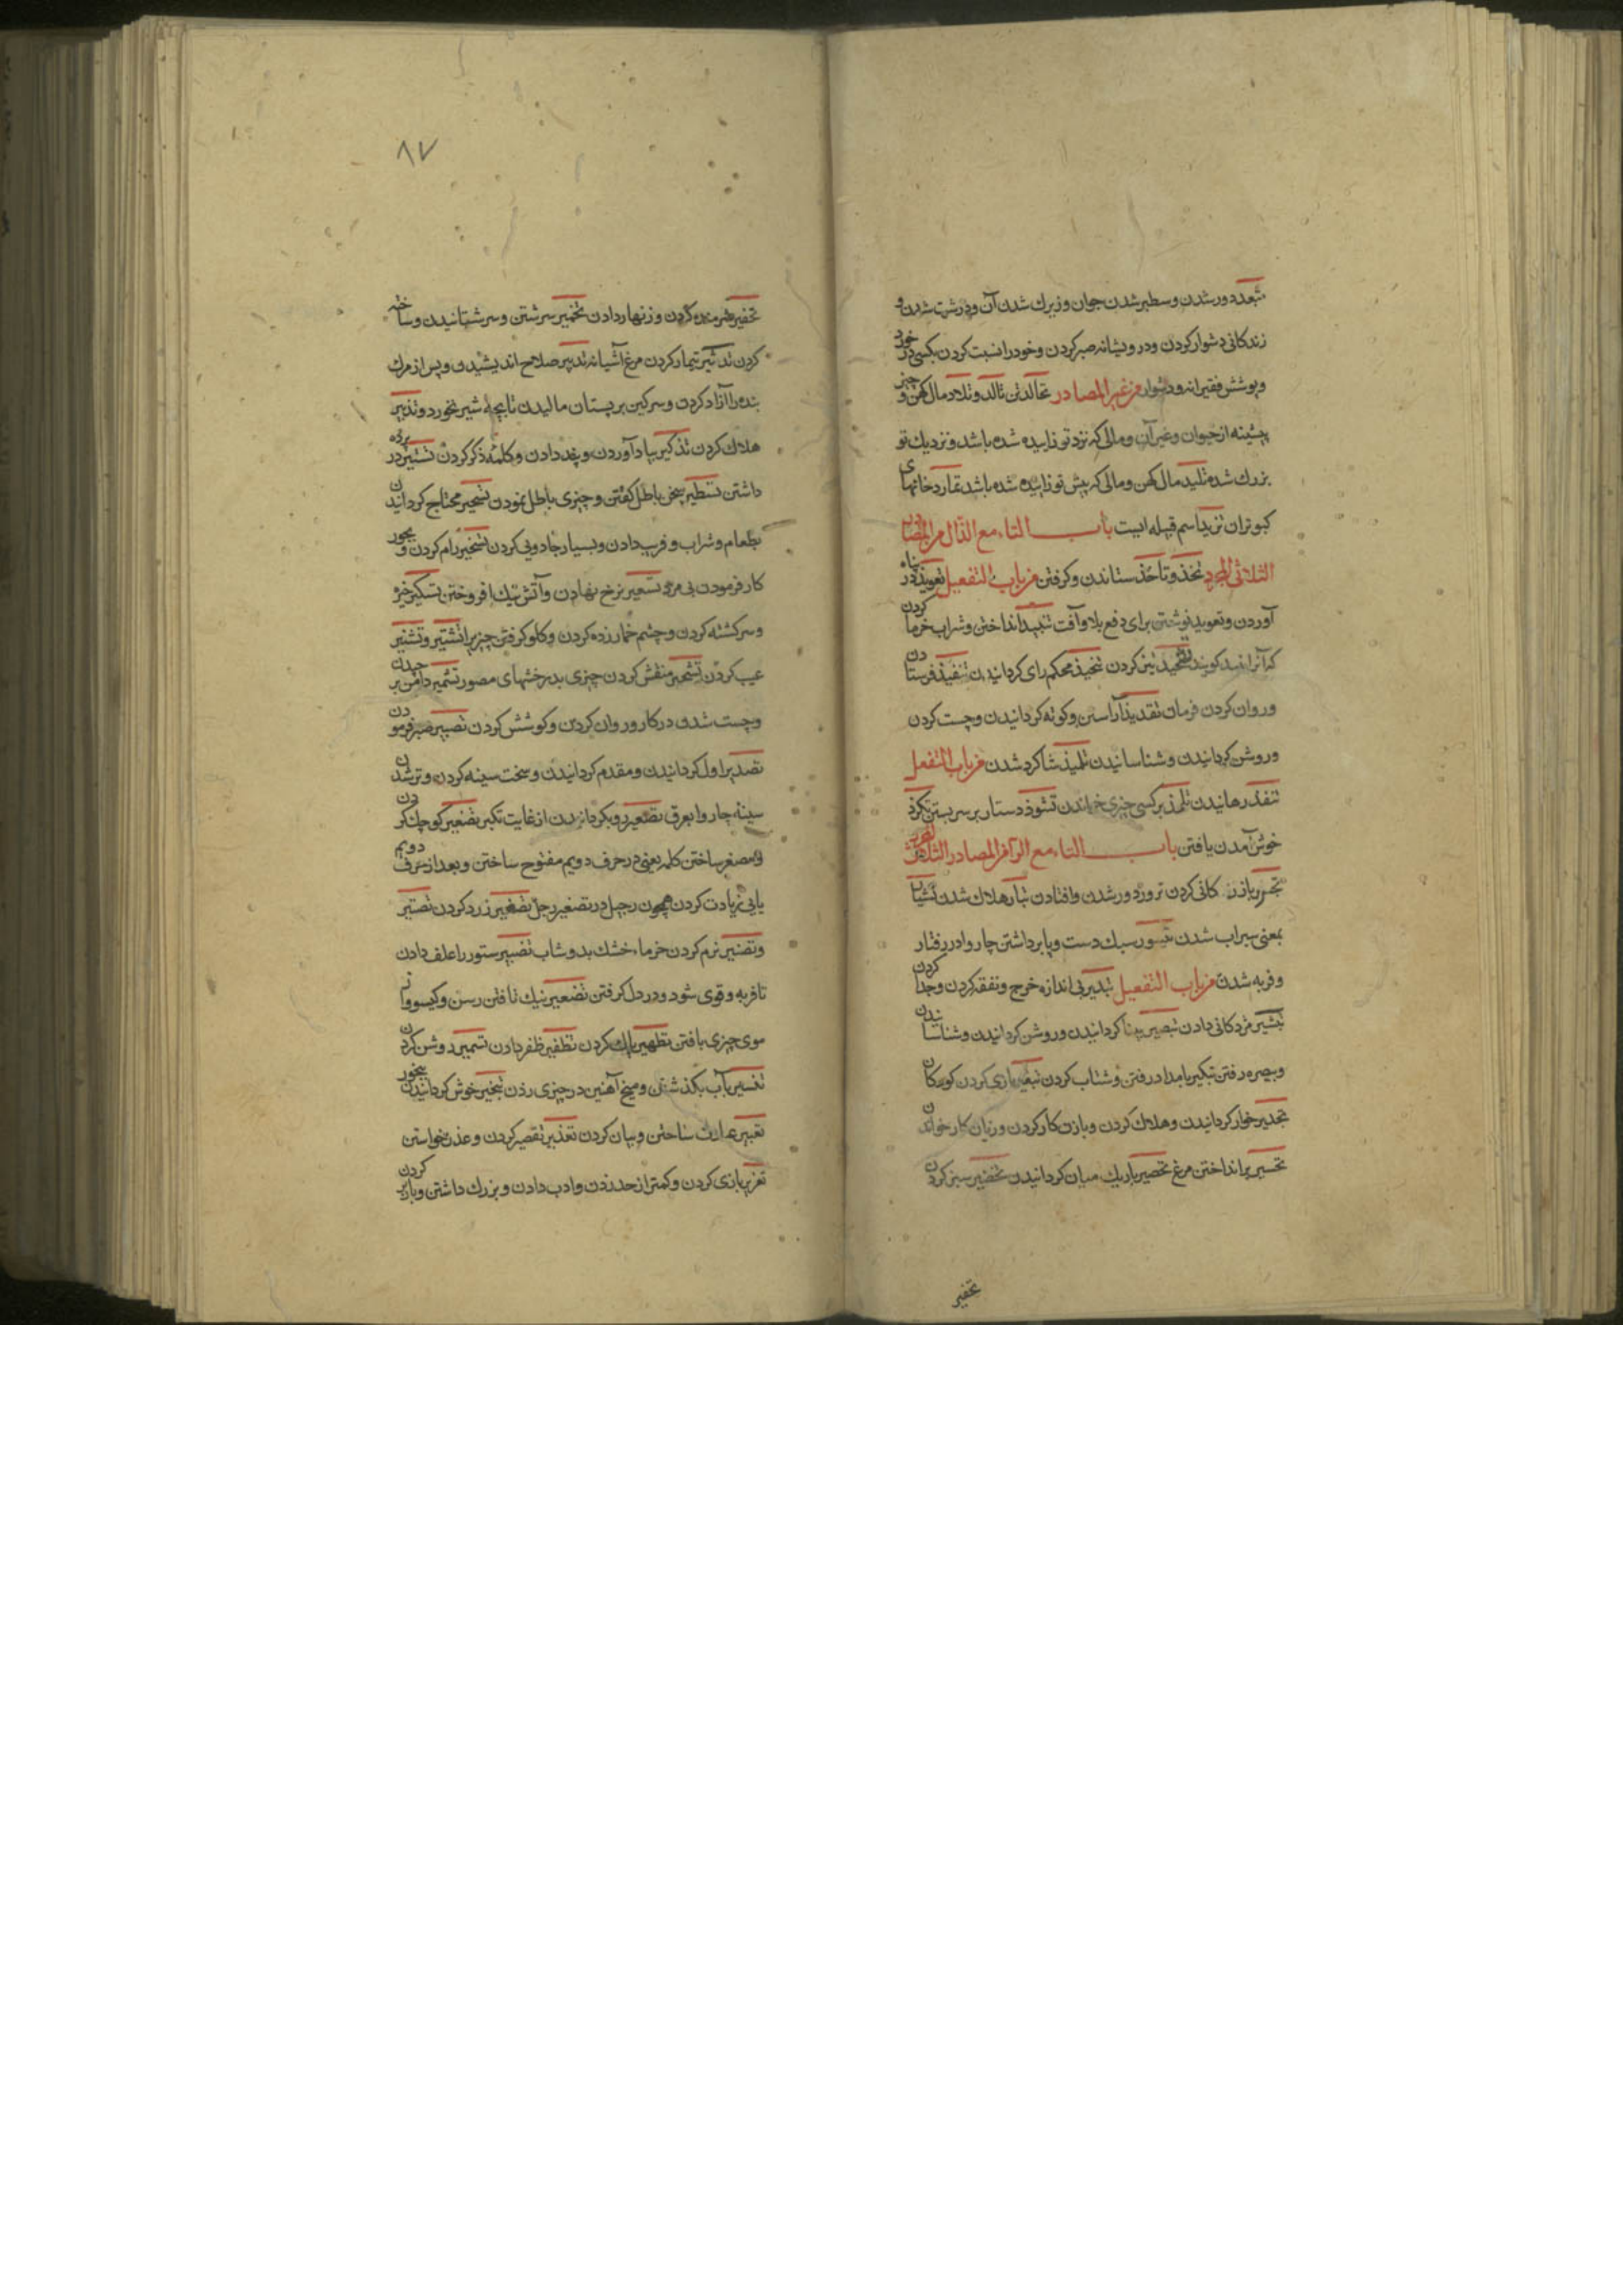 تمعدد دور شدن و سطبر شدن جوان و زیرك شدن آن و درشت شدن و
زندكانی دشوار كردن و درویشانه صبر كردن و خود را نسبت كردن بكسی در خورد
و پوشش فقیرانه و دشوار من غیر المصادر تالد و تلاد مال كهن و
پیشینه از حیوان و غیر آن و مالی كه نزد تو زاییده شده باشد و نزدیك تو
بزرك شده تلید مال كهن و مالی كه پیش تو زاییده شده باشد تمارد خانهای
كبوتران تزید اسم قبیله ایست باب التاء مع الذال من المصادر
الثلاثی المجرد تخذ و تأخذ ستاندن و كرفتن من باب التفعیل تعویذ در پناه
آوردن و تعویذ نوشتن برای دفع بلا و آفت تنبیذ انداختن و شراب خرما كردن
كه آنرا نبیذ كویند تشحیذ تیز كردن تنجیذ محكم رای كردانیدن تنفیذ فرستادن
و روان كردن فرمان تقذیذ آراستن و كوته كردانیدن و چست كردن
و روشن كردانیدن و شناسانیدن تلمیذ شاكرد شدن من باب التفعل
تنقذ رهانیدن تلمذ بر كسی چیزی خواندن تشوذ دستار بر سر بستن تلذذ
خوش آمدن یافتن باب التاء مع الرآ من المصادر الثلاثی المجرد
تجر بازركانی كردن ترور دور شدن و افتادن تبار هلاك شدن
بمعنی سیراب شدن تیسور سبك دست و پا برداشتن چاروا در رفتار
و فربه شدن من باب التفعیل تبذیر بی اندازه خرج و نفقه كردن و جدا كردن
تبشیر مژدكانی دادن تبصیر بینا كردانیدن و روشن كردانیدن و شناساندن
و ببصره رفتن تبكیر بامداد رفتن و شتاب كردن تبقیر بازی كردن كودكان
تحقیر خوار كردانیدن و هلاك كردن و
تحسیر پر انداختن مرغ تخصیر باریك میان كردانیدن تخضیر سبز كردن
تخفیر
٨٧
تخفیر شرمنده كردن و زنهار دادن تخمیر سرشتن و سرشتانیدن و ساخته
كردن تدثیر تیمار كردن مرغ آشیانه تدبیر صلاح اندیشیدن و پس از مرك
بنده را آزاد كردن و سركین بر پستان مالیدن تا بچه شیر نخورد و تدمیر
هلاك كردن تذكیر بیاد آوردن و پند دادن و كلمه ذكر كردن تستیر در پرده
داشتن تسطیر سخن باطل كفتن و چیزی باطل نمودن تسحیر محتاج كردانیدن
بطعام و شراب و فریب دادن و بسیار جادویی كردن تسخیر رام كردن و بجور
كار فرمودن بی مزد تسعیر نرخ نهادن و آتش نیك افروختن تسكیر خیره
و سركشته كردن و چشم خمار زده كردن و كلو كرفتن چیزیرا تشتیر و تشنیر
عیب كردن تشجیر منقش كردن چیزی بدرختهای مصور تشمیر دامن بر چیدن
و چست شدن در كار و روان كردن و كوشش كردن تصبیر صبر فرمودن
تصدیر اول كردانیدن و مقدم كردانیدن و سخت سینه كردن و تر شدن
سینه چاروا بعرق تصعیر رو بكردانیدن از غایت تكبر تصغیر كوچك كردن
و مصغر ساختن كلمه یعنی در حرف دویم مفتوح ساختن و بعد از حرف دویم
یایی زیادت كردن همچون رجیل در تصغیر رجل تصفیر زرد كردن تصقیر
و تصنیر نرم كردن خرماء خشك بدوشاب تضمیر ستور را علف دادن
تا فربه و قوی شود و در دل كرفتن تضفیر نیك تافتن رسن و كیسو و از
موی چیزی بافتن تطهیر پاك كردن تظفیر ظفر دادن تسمیر روشن كردن
تغسیر آب بكذشتن و میخ آهنین در چیزی زدن تبخیر خوش كردانیدن ببخور
تعبیر عبارت ساختن و بیان كردن تعذیر تقصیر كردن و عذر خواستن
تعزیر بازی كردن و كمتر از حد زدن و ادب دادن و بزرك داشتن و